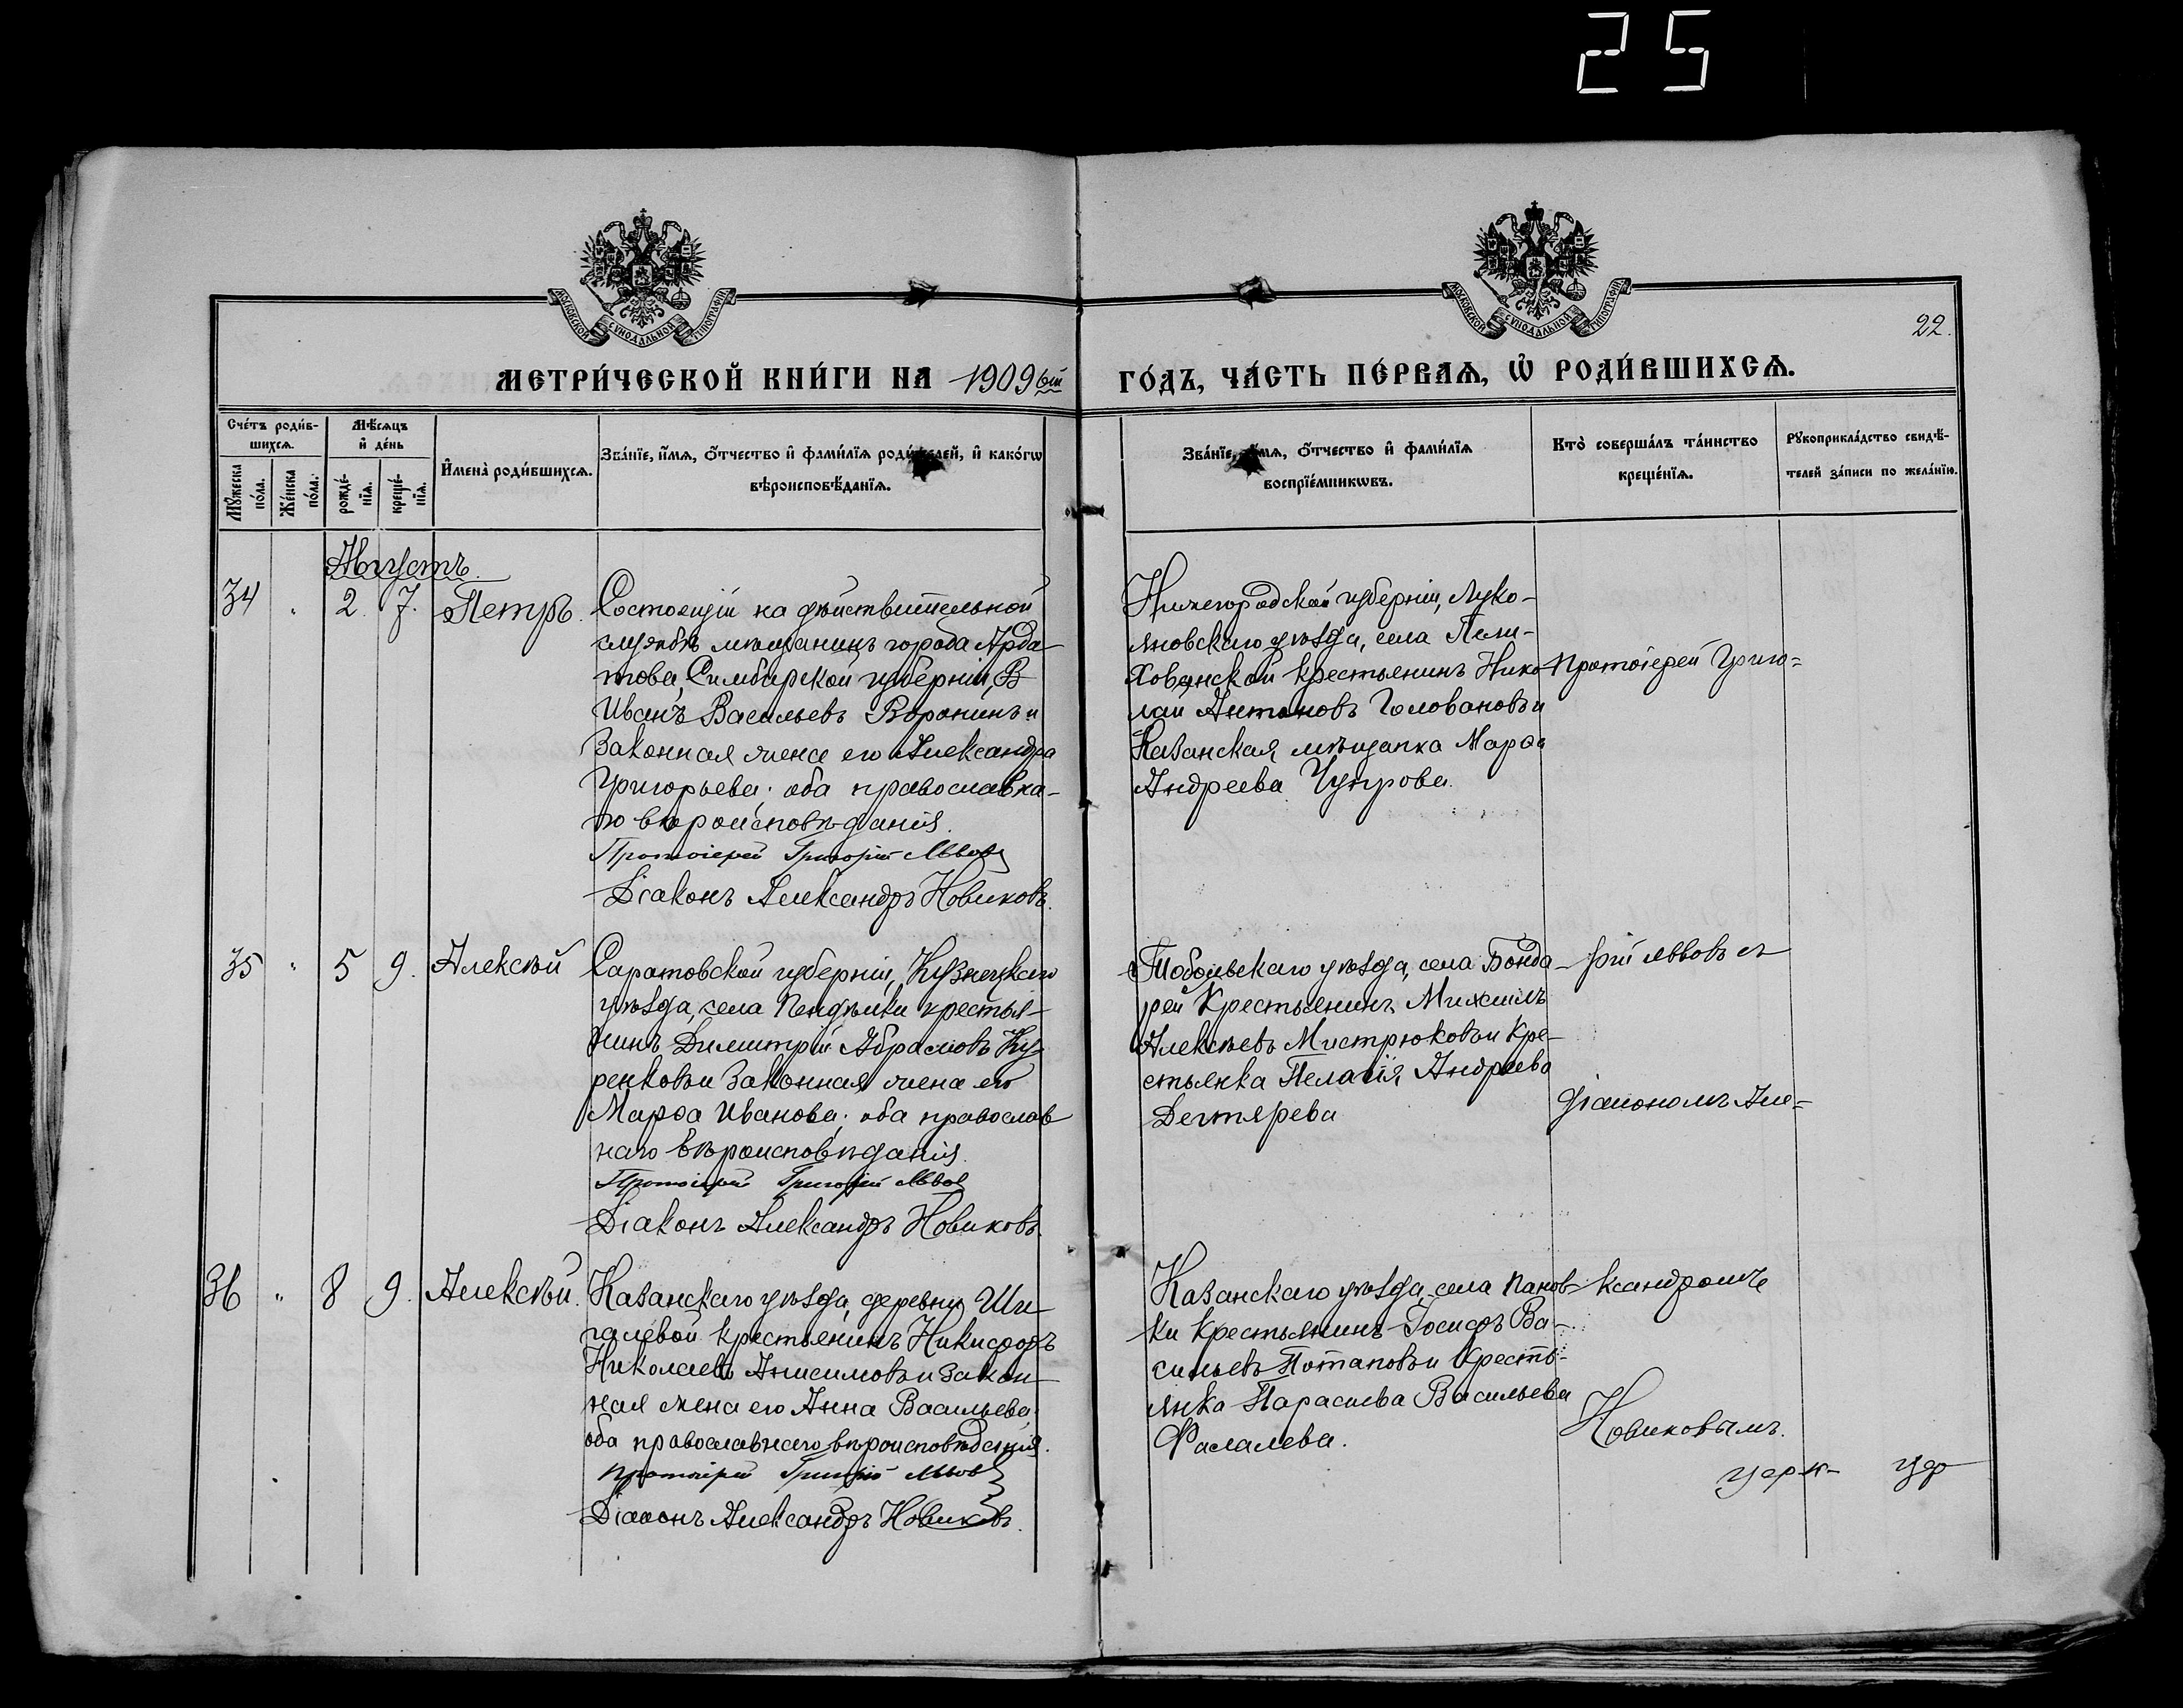 25
МОСКОВСКОЙ СѴНОДАЛЬНОЙ ТИПОГРАФІИ
МОСКОВСКОЙ СѴНОДАЛЬНОЙ ТИПОГРАФІИ
22.
МЕТРИ́ЧЕСКОЙ КНИ́ГИ НА 1909ый ГО́ДЪ, ЧА́СТЬ ПЕ́РВАѦ, Ѽ РОДИ́ВШИХСѦ.
Сче́тъ роди́в-
шихсѧ.
Мꙋ́жеска по́ла.
Же́нска по́ла.
Мѣ́сѧцъ
и҆ де́нь
рожде́-
нїѧ.
креще́-
нїѧ.
И҆мена̀ роди́вшихсѧ.
Зва́нїе, и҆́мѧ, ѻ҆́тчество и҆ фами́лїѧ роди́телей, и҆ како́гѡ
вѣроисповѣ́данїѧ.
Зва́нїе, и҆́мѧ, ѻ҆́тчество и҆ фами́лїѧ
воспрїе́мникѡвъ.
Кто̀ соверша́лъ та́инство
креще́нїѧ.
Рꙋкоприкла́дство свидѣ́-
телей за́писи по жела́нїю.
Августъ.
34 " 2. 7. Петръ.
Состоящій на дѣйствительной
службѣ мѣщанинъ города Арда-
това, Симбирской губерніи,
Иванъ Васильевъ Воронинъ и
законная жена его Александра
Григорьева; оба православна-
го вѣроисповѣданія.
Протоіерей Григорій Львовъ
Діаконъ Александръ Новиковъ.
Нижегородской губерніи, Луко-
яновскаго уѣзда, села
крестьянинъ Нико-
лай Антоновъ Головановъ и
Казанская мѣщанка Марѳа
Андреева Чупрова.
Протоіерей Григо-
35 " 5 9. Алексѣй
Саратовской губерніи, Кузнецкаго
уѣзда, села Пендѣлки крестья-
нинъ Димитрій Абрамовъ Ку-
ренковъ и законная жена его
Марѳа Иванова; оба православ
наго вѣроисповѣданія.
Протоіерей Григорій Львовъ
Діаконъ Александръ Новиковъ.
уѣзда, села Бонда-
рей крестьянинъ Михаилъ
Алексѣевъ Мистрюковъ и кре-
стьянка Пелагія Андреева
Дегтярева
рій Львовъ съ
діакономъ Але-
36 " 8 9. Алексѣй.
Казанскаго уѣзда, деревни Ши-
галевой крестьянинъ Никифоръ
Николаевъ Анисимовъ и закон-
ная жена его Анна Васильева;
оба православнаго вѣроисповѣданія.
Протоіерей Григорій Львовъ
Діаконъ Александръ Новиковъ.
Казанскаго уѣзда, села Панов-
ки крестьянинъ Іосифъ Ва-
сильевъ Потаповъ и кресть-
янка Параскева Васильева
Фалалева.
ксандромъ
Новиковымъ.